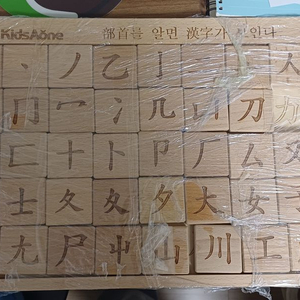 KidsAone 部首를 알면 漢字가 보인다
丶 丿 乙 亅 人
冂 冖 冫 几 凵 刀 力
匚 十 卜 卩 厂 厶 又
士 夂 夊 夕 大 女 子
尢 尸 屮 山 川 工